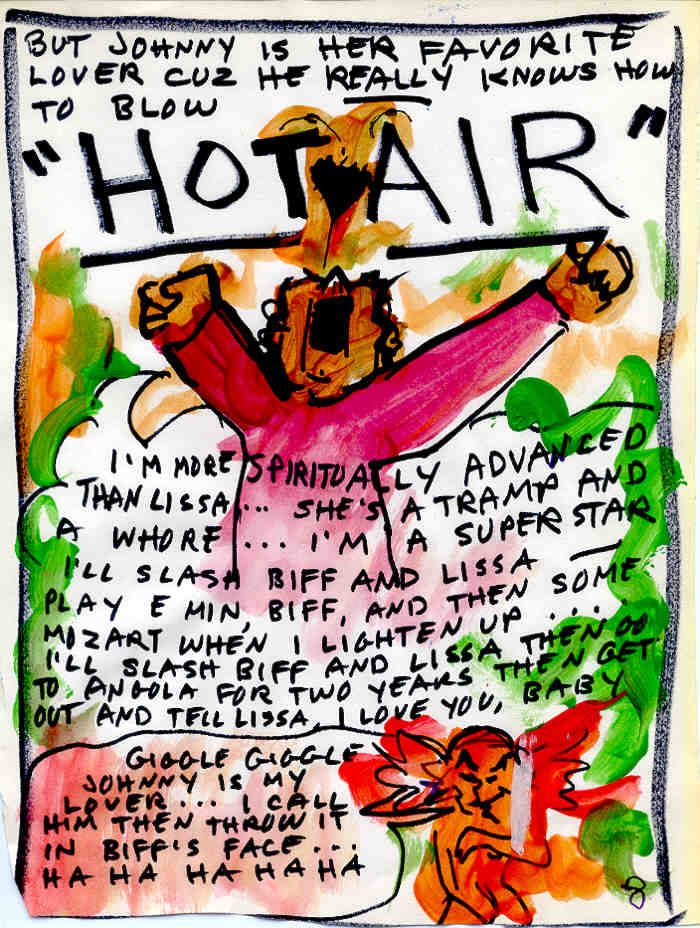 BUT JOHNNY IS HER FAVORITE
LOVER CUZ HE REALLY KNOWS HOW
TO BLOW
"HOT AIR"
I'M MORE SPIRITUALLY ADVANCED
THAN LISSA... SHE'S A TRAMP AND
A WHORE ... I'M A SUPERSTAR
I'LL SLASH BIFF AND LISSA —
PLAY E MIN, BIFF, AND THEN SOME
MOZART WHEN I LIGHTEN UP ....
I'LL SLASH BIFF AND LISSA THEN GO
TO ANGOLA FOR TWO YEARS THEN GET
OUT AND TELL LISSA, I LOVE YOU, BABY
GIGGLE GIGGLE
JOHNNY IS MY
LOVER... I CALL
HIM THEN THROW IT
IN BIFF'S FACE...
HA HA HA HA HA
8